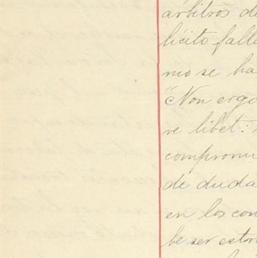 arbitros de
lícito falla
mo se ha
"Non ergo
re libet:
compromi
de duda
en los con
be ser estri